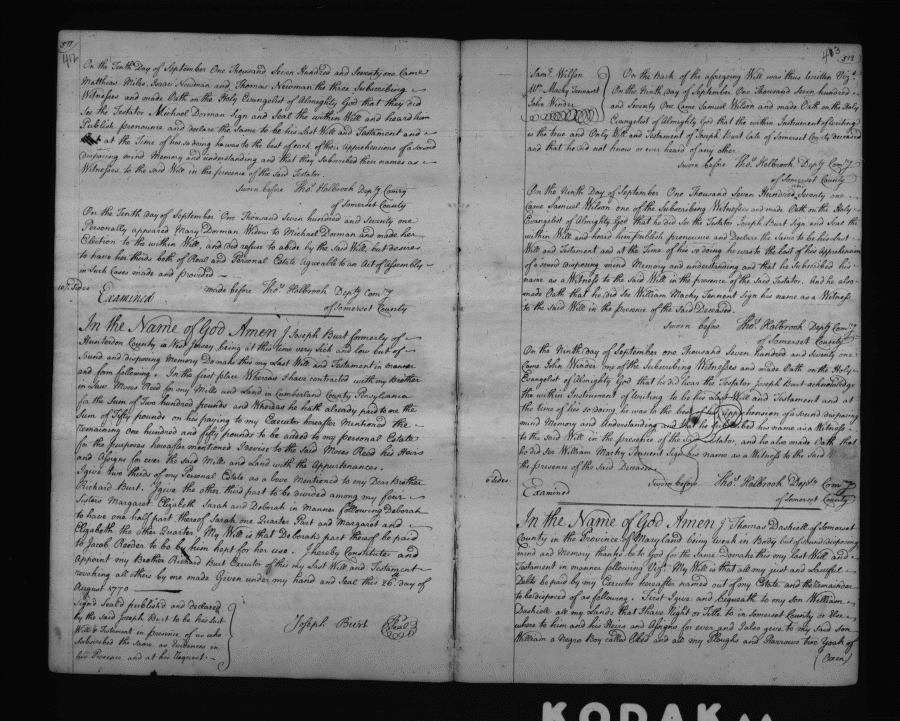 412
On the Tenth Day of September One Thousand Seven Hundred and Seventy one Came
Matthias Miles, Isaac Newman and Thomas Newman the three Subscribing
Witnesses and made Oath on the Holy Evangelist of Almighty God that they did
See the Testator Michael Dorman Sign and Seal the within Will and heard him
Publish pronounce and declare the Same to be his Last Will and Testament and
at the Time of his so doing he was to the best of each of their Apprehensions of a sound
disposing mind Memory and understanding and that they Subscribed their names as
Witnesses to the said Will in the presence of the said Testator.
Sworn before Thos. Holbrook Depty Comry
of Somerset County
On the Tenth Day of September One Thousand Seven hundred and Seventy one
Personally appeared Mary Dorman Widow to Michael Dorman and made her
Election to the within Will, and did refuse to abide by the said Will, but desires
to have her thirds both of Real and Personal Estate Agreeable to an Act of Assembly
in Such Cases made and provided
made before Thos. Holbrook Depty Comry
Sides
Examined
of Somerset County
In the Name of God Amen I Joseph Burt formerly of
Hunterdon County in West Jersey being at this time very Sick and low but of
Sound and disposing Memory Do make this my Last Will and Testament in manner
and form following. In the first place Whereas I have contracted with my Brother
in Law Moses Reed for my Mills and Land in Cumberland County Pensylvania
for the Sum of Two hundred pounds and Whereas he hath already paid to me the
Sum of Fifty pounds on his paying to my Executor hereafter Mentioned the
Remaining one hundred and fifty pounds to be added to my personal Estate
for the purposes hereafter mentioned I devise to the Said Moses Reed his Heirs
and Assigns for ever the Said Mills and Land with the Appurtenances.
I give two thirds of my Personal Estate as a bove Mentioned to my Dear Brother
Richard Burt. I give the other third part to be divided among my four
Sisters Margaret Elizabeth Sarah and Deborah in Manner following Deborah
to have one half part thereof Sarah one Quarter Part and Margaret and
Elizabeth the other Quarter. My Will is that Deborahs part thereof be paid
to Jacob Reeder to be by him kept for her use. I hereby Constitute and
Appoint my Brother Richard Burt Executor of this my Last Will and Testament
revoking all others by me made Given under my hand and Seal this 26th day of
August 1770
Sign'd Seal'd published and declared
by the said Joseph Burt to be his last
Will & Testament in presence of us who
subscribed the same, as Evidences in
his Presence and at his Request
Joseph Burt
Seal
413
Saml. Wilson
Wm. Macky Tennent
John Winder
On the back of the aforegoing Will was thus written Vizt.
On the Ninth Day of September One Thousand Seven hundred
and Seventy One Came Samuel Wilson and made Oath on the Holy
Evangelist of Almighty God that the within Instrument of Writing
is the true and Only Will and Testament of Joseph Burt late of Somerset County deceased
and that he did not know or ever heard of any other.
Sworn before Thos. Holbrook Depty Comry
of Somerset County
On the Ninth Day of September One Thousand Seven Hundred Seventy one
Came Samuel Wilson one of the Subscribing Witnesses and made Oath on the Holy
Evangelist of Almighty God that he did see the Testator Joseph Burt Sign and Seal the
within Will and heard him publish pronounce and Declare the Same to be his Last
Will and Testament and at the Time of his so doing he was to the best of his Apprehension
of a sound disposing mind Memory and understanding and that he Subscribed his
name as a Witness to the said Will in the presence of the Said Testator. And he also
made Oath that he did See William Macky Tennent Sign his name as a Witness
to the said Will in the presence of the Said Deceased.
Sworn before Thos. Holbrook Depty Comry
of Somerset County
On the Ninth day of September one Thousand Seven hundred and Seventy one
Came John Winder one of the Subscribing Witnesses and made Oath on the Holy
Evangelist of Almighty God that he did hear the Testator Joseph Burt acknowledge
the within Instrument of Writing to be his Last Will and Testament and at
the time of his so doing he was to the best of his Apprehension of a sound disposing
mind Memory and Understanding and that he Subscribed his name as a Witness
to the said Will in the presence of the said Testator, and he also made Oath that
he did See William Macky Tennent Sign his name as a Witness to the Said
the presence of the Said Deceased
6 Sides
Sworn before Thos. Holbrook Depty Comry
Examined
of Somerset County
In the Name of God Amen I Thomas Dashiell of Somerset
County in the Province of Maryland being Weak in Body but of Sound disposing
mind and Memory thanks be to God for the Same Do make this my Last Will and
Testament in manner following Vizt. My Will is that all my just and Lawful
Debts be paid by my Executor hereafter named out of my Estate and the Remainder
to be disposed of as following. First I give and bequeath to my son William
Dashiell all my Lands that I have Right or Title to in Somerset County or else
where to him and his Heirs and Assigns for ever and I also give to my Said Son
William a Negro Boy called Eben and all my Ploughs and Harrows two Yoak of
(Oxen)
KODAK